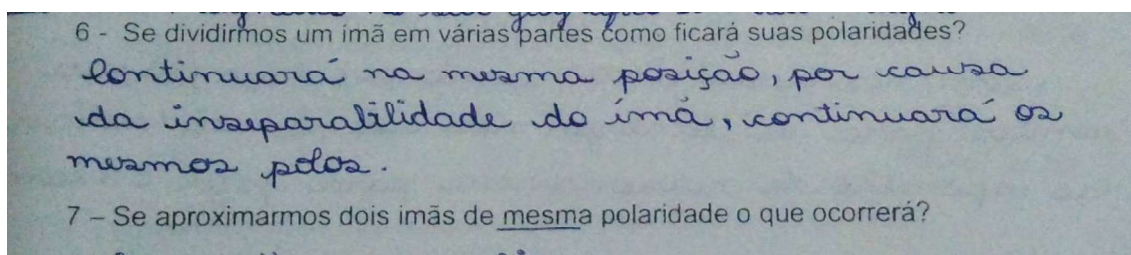 6 - Se dividirmos um imã em várias partes como ficará suas polaridades?
Continuará na mesma posição, por causa
da inseparabilidade do ímã, continuará os
mesmos polos.
7 – Se aproximarmos dois imãs de mesma polaridade o que ocorrerá?